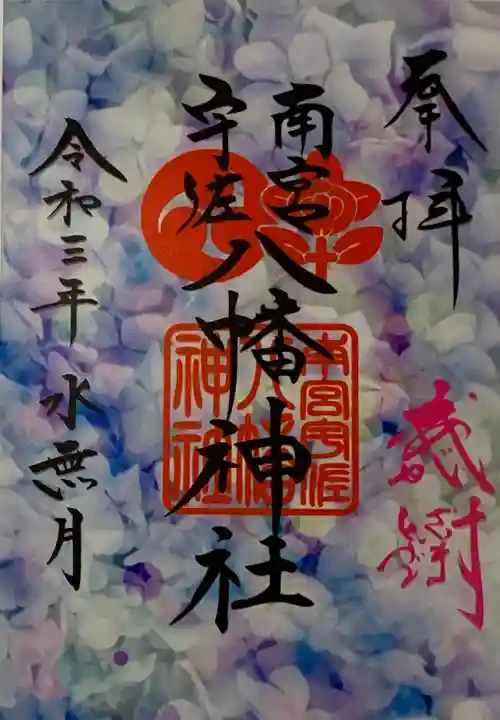 奉拝
感謝
南宮
宇佐
八幡神社
南宮宇佐
八幡
神社
令和三年水無月